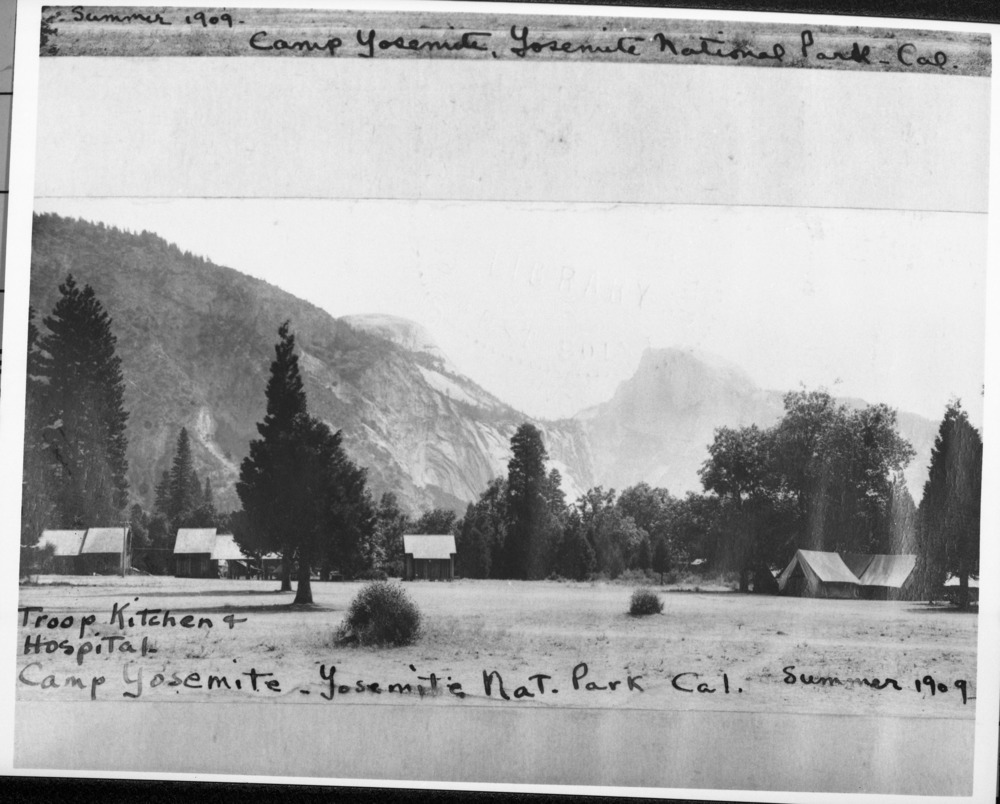 Summer 1909.
Camp Yosemite, Yosemite National Park - Cal.
LIBRARY
Troop Kitchen &
Hospital
Camp Yosemite - Yosemite Nat. Park Cal. Summer 1909